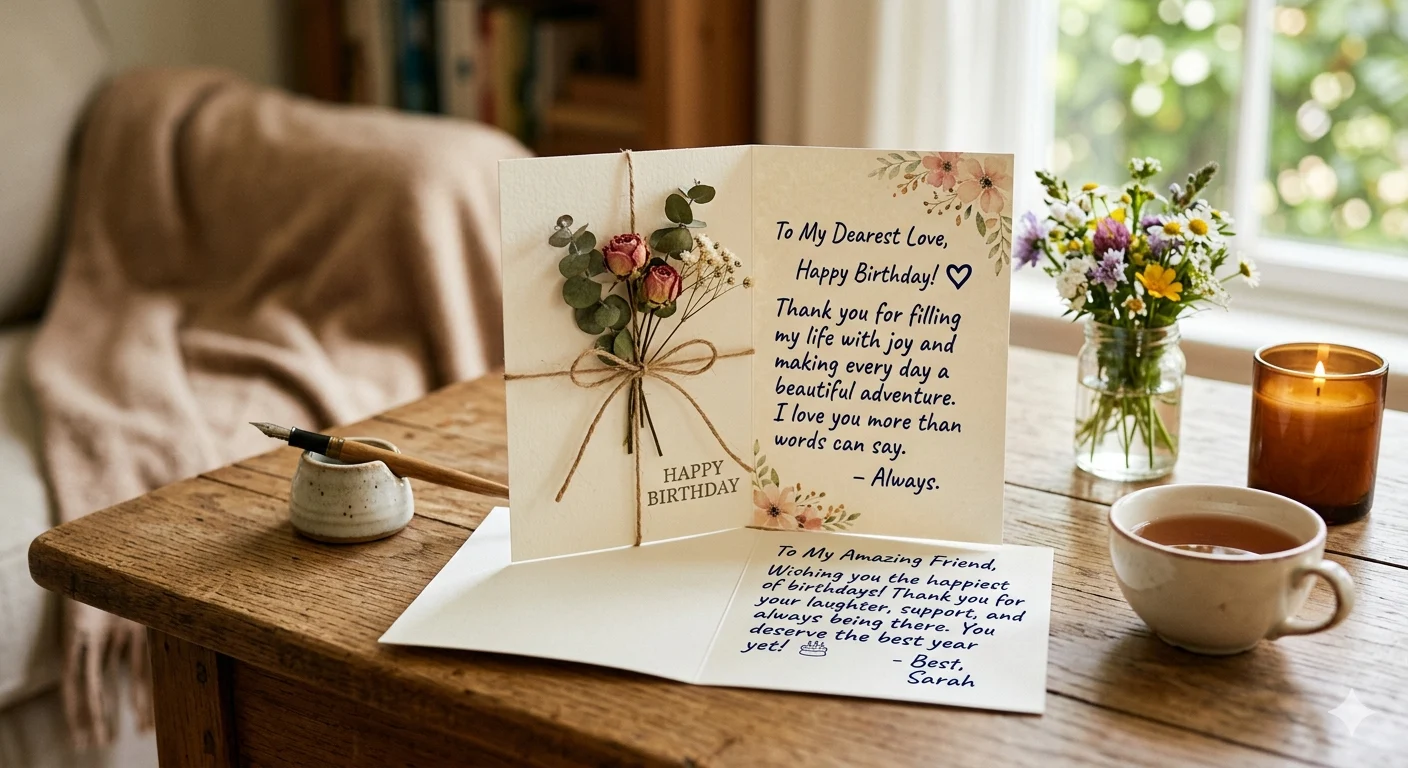 HAPPY
BIRTHDAY
To My Dearest Love,
Happy Birthday! ♡
Thank you for filling
my life with joy and
making every day a
beautiful adventure.
I love you more than
words can say.
– Always.
To My Amazing Friend,
Wishing you the happiest
of birthdays! Thank you for
your laughter, support, and
always being there. You
deserve the best year
yet! 🎂
– Best,
Sarah